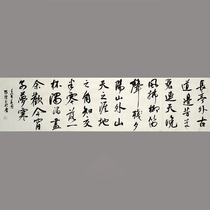 長亭外古
道邊芳草
碧連天晚
風拂柳笛
聲殘夕
陽山外山
天之涯地
之角知交
半零落一
杯濁酒盡
余歡今宵
別夢寒